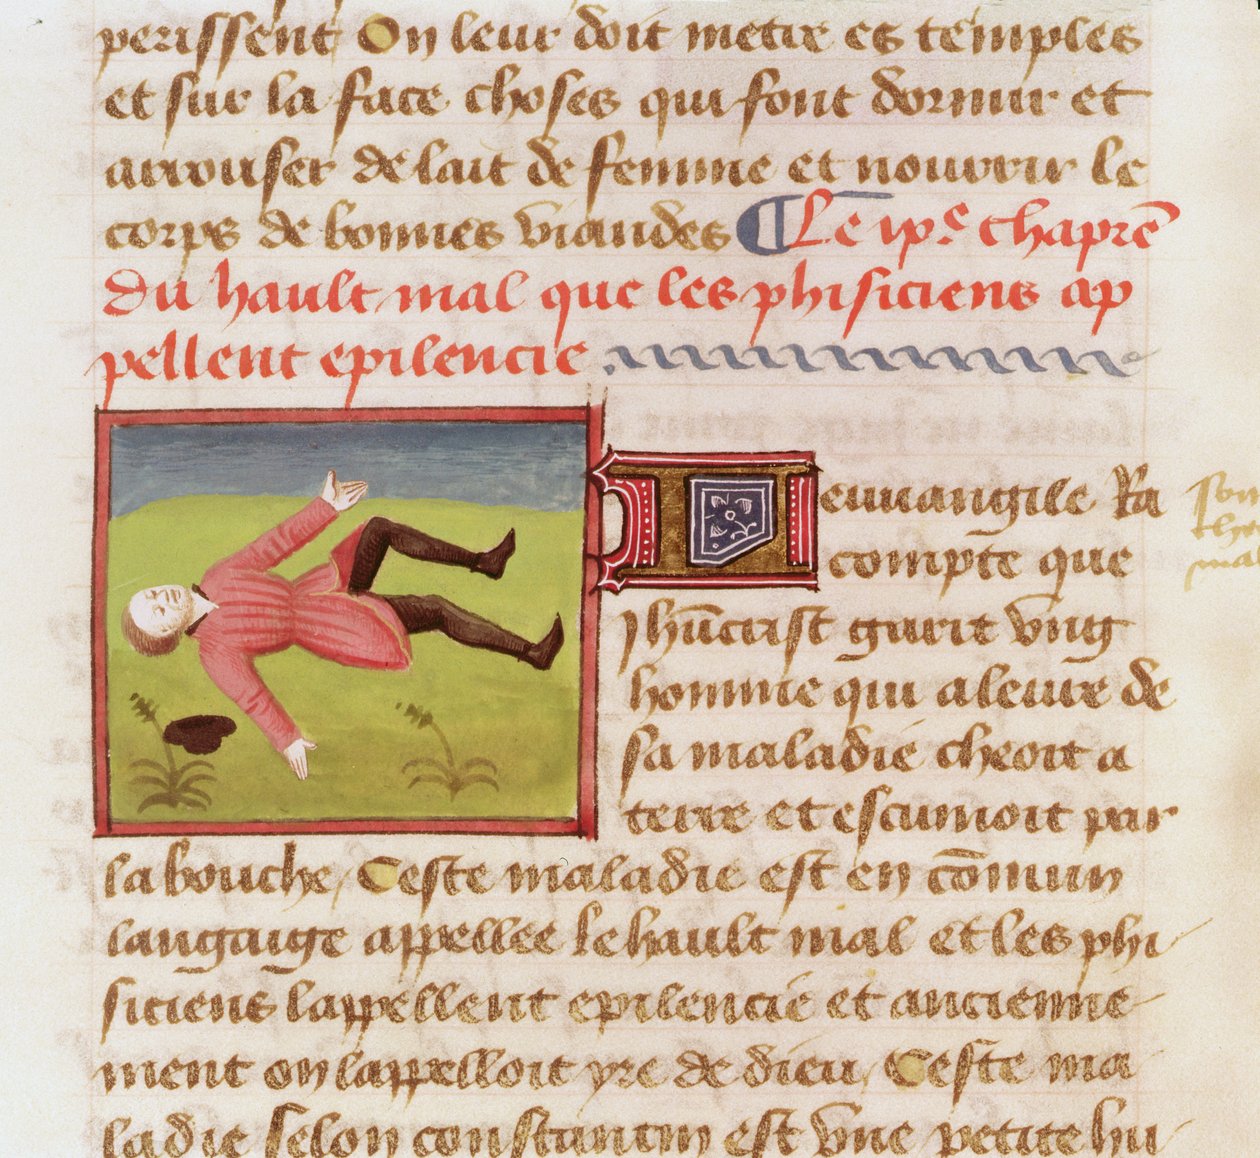 perissent On leur doit metre es temples
et sur la face choses qui font dormir et
arrouser de lait de femme et nourrir le
corps de bonnes viandes ¶ Le ixᵉ chaprē
du hault mal que les phisiciens ap
pellent epilencie
L euuangile Ra
compte que
Jhūcrist garit vng
homme qui a leure de
sa maladie cheoit a
terre et escumoit par
la bouche / Ceste maladie est en cōmun
langaige appellee le hault mal et les phi
siciens lappellent epilencie et ancienne
ment on lappelloit yre de dieu / Ceste ma
ladie selon constantin est vne petite hu